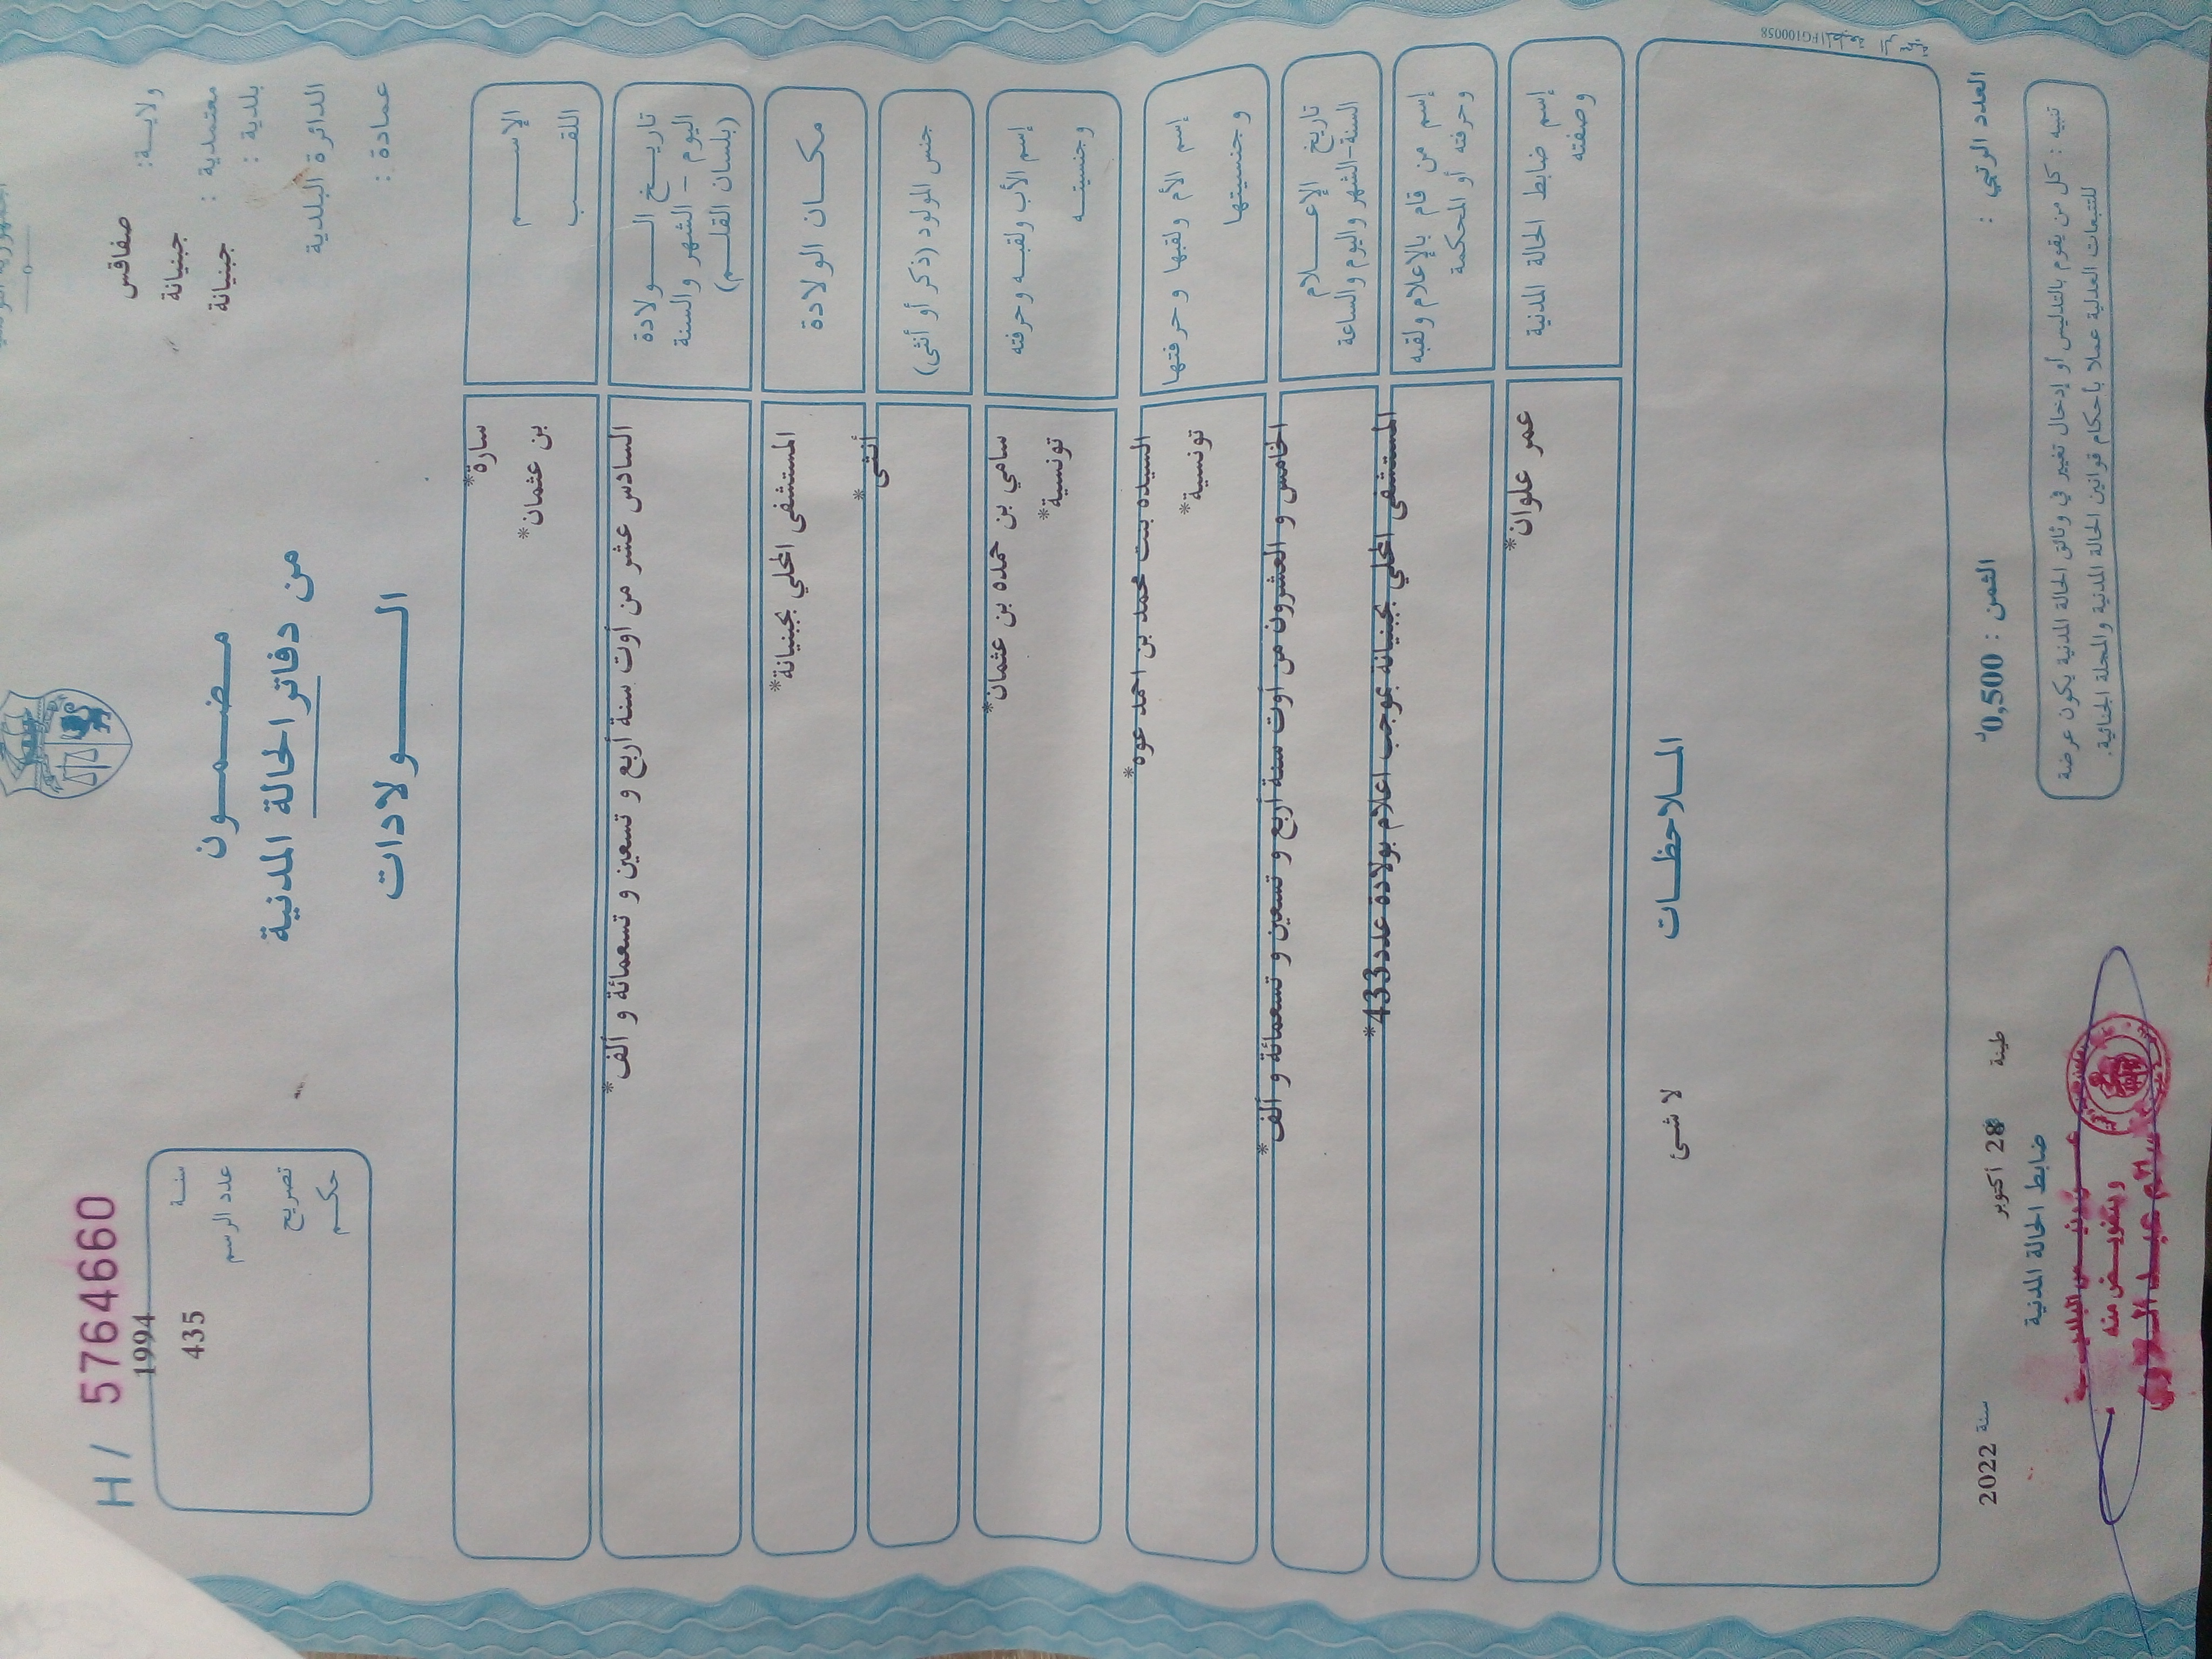 ولايـــة: صفاقس
معتمدية : جبنيانة
بلدية : جبنيانة
الدائرة البلدية
عمادة :
مـــضـــمـــــون
من دفاتر الحالة المدنية
الـــــــولادات
H / 5764660
سنـــة 1994
عدد الرسم 435
تصريح
حكـــم
الإســـــــم
سارة*
اللقـــــب
بن عثمان*
تاريـــخ الـــــولادة
اليوم – الشهر والسنة
(بلسان القلـــم)
السادس عشر من أوت سنة أربع و تسعين و تسعمائة و ألف*
مكـــان الولادة
المستشفى المحلي بجبنيانة*
جنس المولود (ذكر أو أنثى)
أنثى*
إسم الأب ولقبـــه وحرفته
وجنسيتـــه
سامي بن حمده بن عثمان*
تونسية*
إسم الأم ولقبها وحرفتها
وجنسيتها
السيده بنت محمد بن احمد عوه*
تونسية*
تاريخ الإعـــــلام
السنة-الشهر واليوم والساعة
الخامس و العشرون من أوت سنة أربع و تسعين و تسعمائة و ألف*
إسم من قام بالإعلام ولقبه
وحرفته أو المحكمة
المستشفى المحلي بجبنيانة بموجب اعلام بولادة عدد433*
إسم ضابط الحالة المدنية
وصفته
عمر علوان*
المـــلاحظـــات
لا شئ
العدد الرتبي :
الثمن : 0,500د
طينة
28 أكتوبر
سنة 2022
ضابط الحالة المدنية
تنبيه : كل من يقوم بالتدليس أو إدخال تغيير في وثائق الحالة المدنية يكون عرضة
للتتبعات العدلية عملا بأحكام قوانين الحالة المدنية والمجلة الجنائية.
وبتفويـــض منه